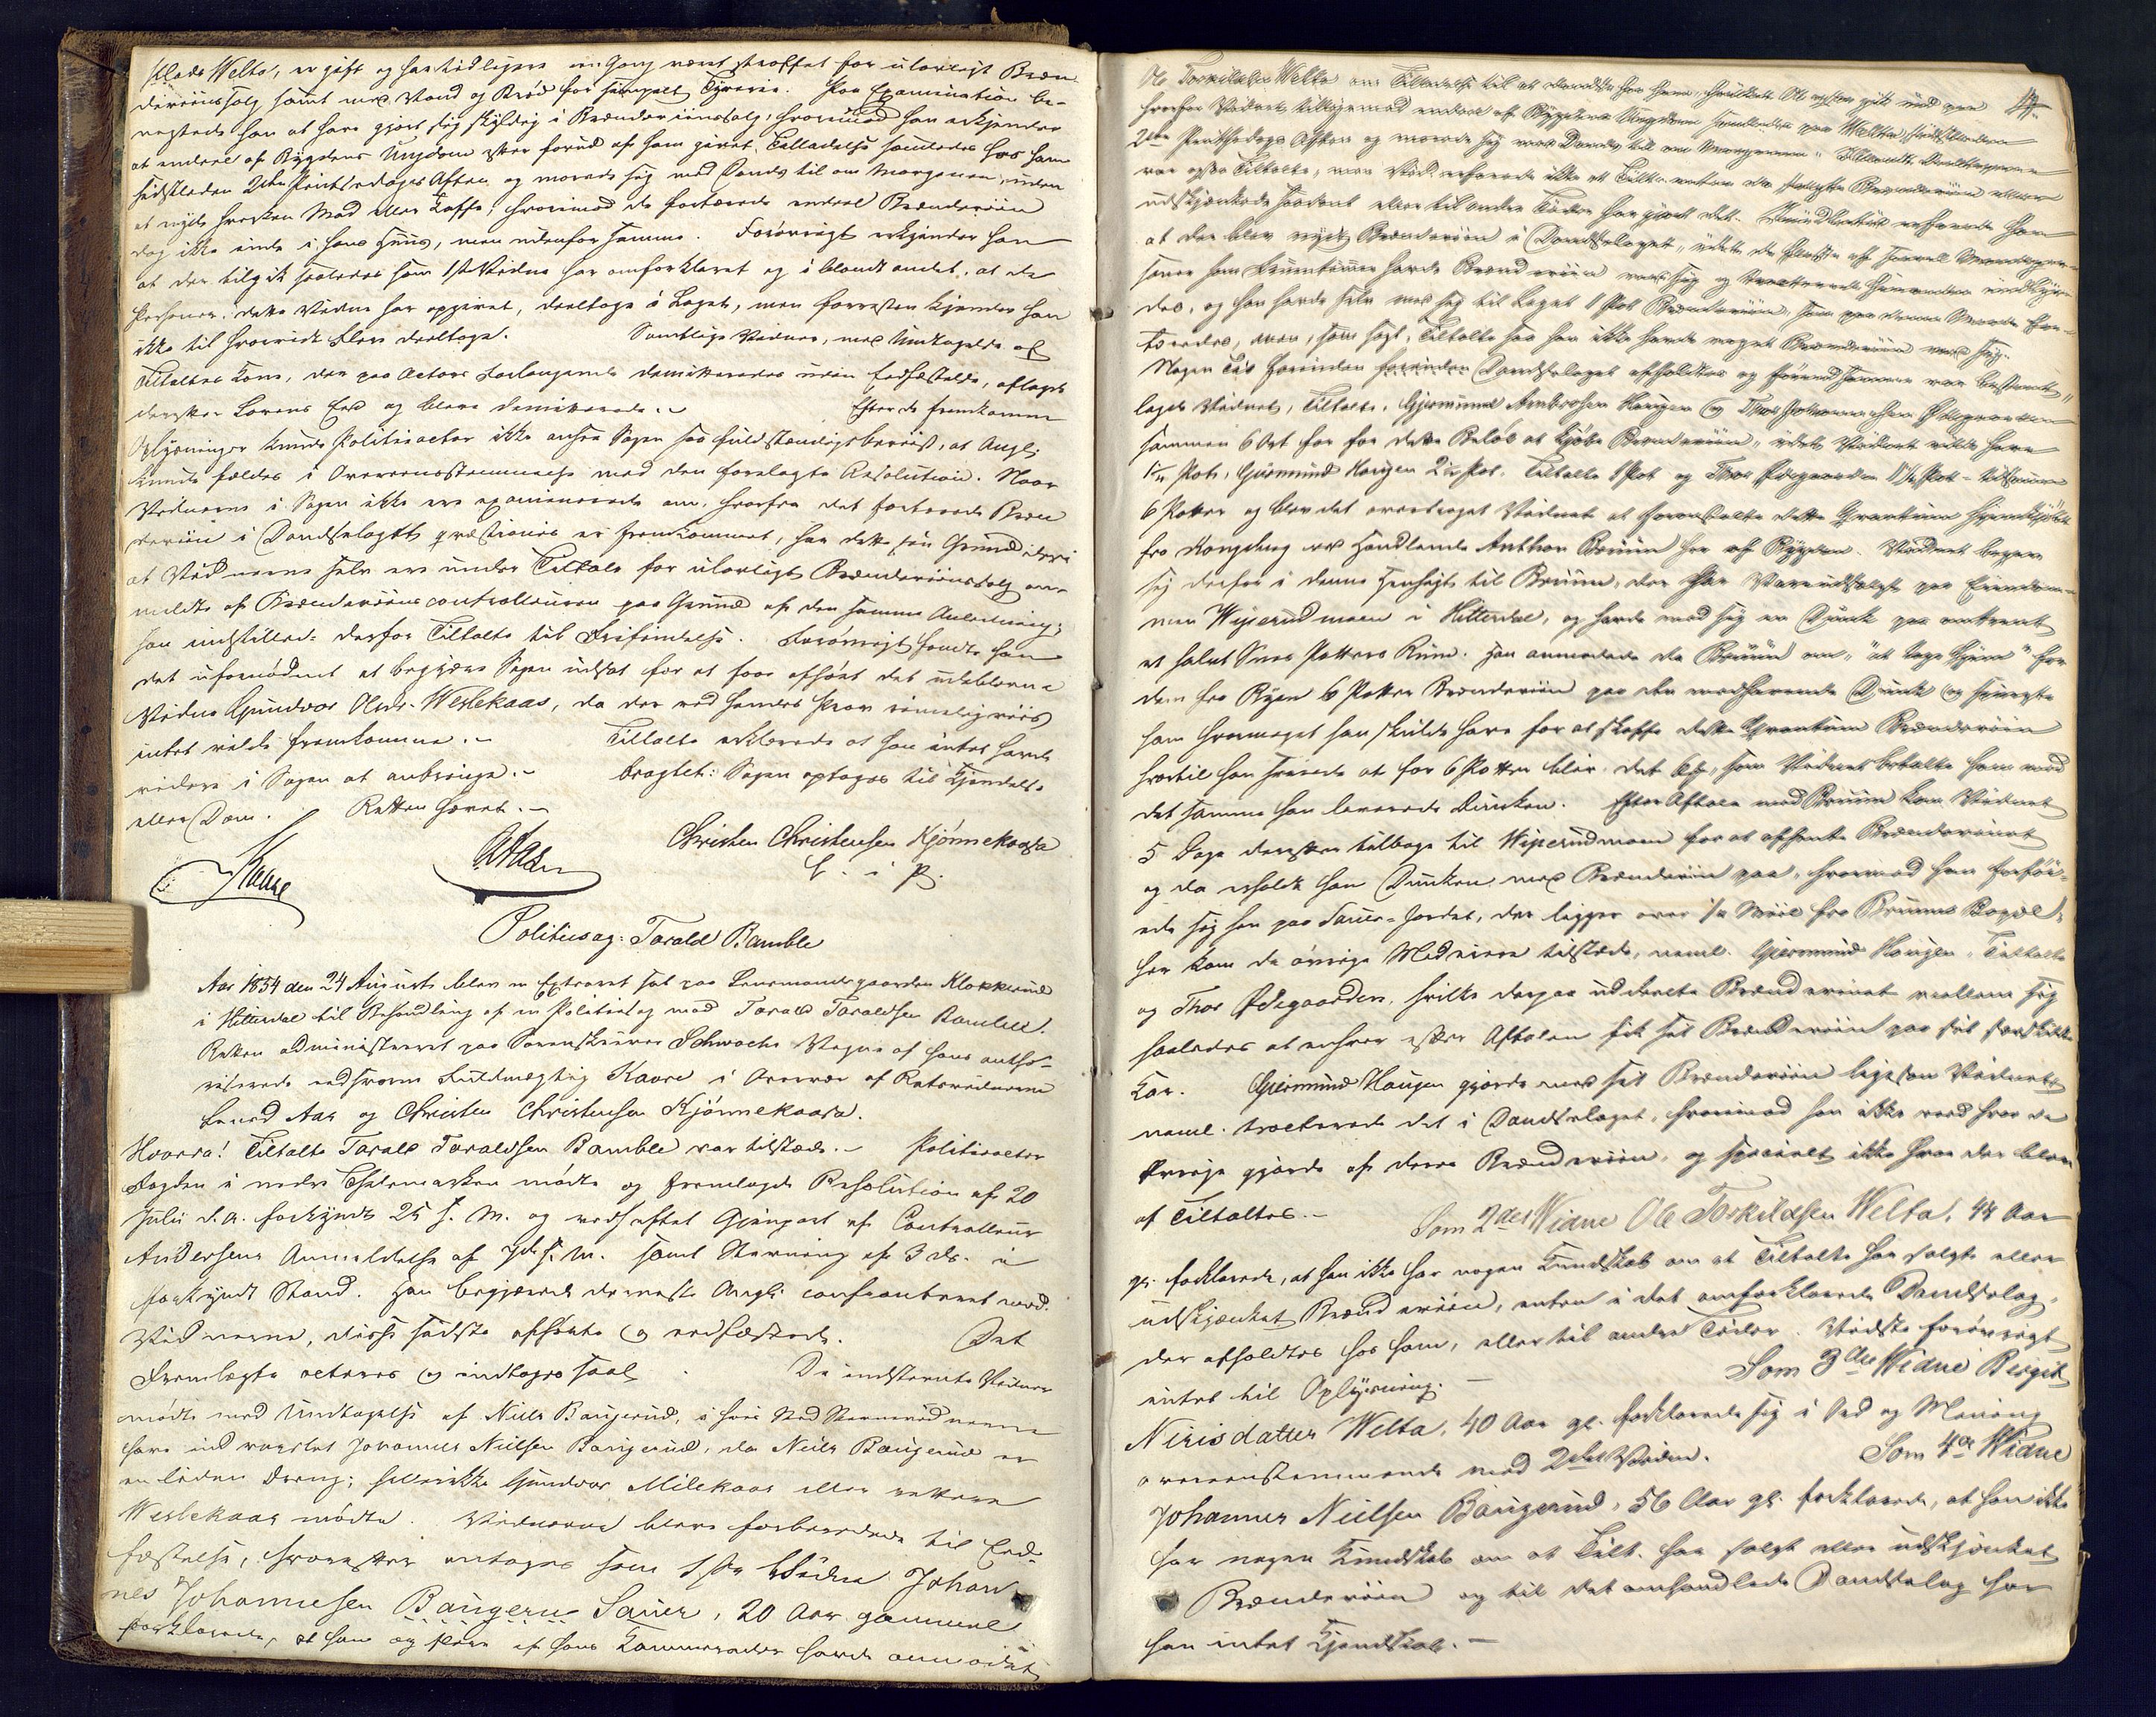 Plads Welta, er gift og har tidligere en Gang været straffet for ulovligt Bræn-
deviinssalg samt med Vand og Brød for simpelt Tyverie. Paa Examination be-
negtede han at have gjort sig skyldig i Brændeviinssalg, hvorimod han erkjender
at endeel af Bygdens Ungdom efter forud af ham givet Tilladelse samledes hos ham
sidstleden 2den Pintsedags Aften og morede sig med Dands til om Morgenen, uden
at nyde hverken Mad eller Kaffe; hvorimod de fortærede endeel Brændeviin
dog ikke inde i hans Huus, men udenfor samme. Forøvrigt erkjender han
at der tilgik saaledes som 1ste Vidne har omforklaret og i blandt andet, at de
Personer, dette Vidne har opgivet, deeltoge i Laget, men forresten kjender han
ikke til hvorvidt Flere deeltoge. Samtlige Vidner, med Undtagelse af
Tiltaltes Kone, der paa Actors Forlangende demitteredes uden Eedfæstelse, aflagde
derefter Lovens Eed og bleve demitterede.- Efter de fremkomne
Oplysninger kunde Politiactor ikke ansee Sagen saa fuldstændigt beviist, at Angl.
kunde fældes i Overeensstemmelse med den foreslagte Resolution. Naar
Vidnerne i Sagen ikke ere examinerede om, hvorfra det fortærede Bræn-
deviin i Dandselaget qvæstionis er fremkommet, har dette sin Grund deri
at Vidnerne selv ere under Tiltale for ulovligt Brændeviinssalg an-
meldte af Brændeviinscontrolleuren paa Grund af den samme Anledning;
han indstillede derfor Tiltalte til Frifindelse. Forøvrigt fandt han
det ufornødent at begjære Sagen udsat for at faae afhørt det udeblevne
Vidne Gundvor Olsdr. Weslekaas, da der ved hendes Prov rimeligviis
intet vilde fremkomme.- Tiltalte erklærede at han intet havde
videre i Sagen at anbringe.- bragtet: Sagen optages til Kjendelse
eller Dom. Retten hævet.-
Kaare AAas Christen Christensen Kjønnekaasa
m. i P.
Politiesag: Tarald Bamble
Aar 1854 den 24 August blev en Extraret sat paa Lensmandsgaarden Klokkerud
i Hitterdal til Behandling af en Politisag mod Tarald Taraldsen Bamble.
Retten administreret paa Sorenskriver Schwachs Vegne af hans autho-
riserede edsvorne Fuldmægtig Kaare i Overvær af Retsvidnerne
Amund Aas og Christen Christensen Kjønnekaasa.
Hvorda! Tiltalte Tarald Taraldsen Bamble var tilstæde.- Politiactor
Fogden i nedre Thelemarken mødte og fremlagde Resolution af 20
Julii d. A. forkyndt 25 s. M. og vedheftet Gjenpart af Controlleur
Andersens Anmeldelse af 7de s. M. samt Stævning af 3 ds. i
forkyndt Stand. Han begjærede dernæst Angl. confronteret med
Vidnerne, disse sidste afhørte og eedfæstede. Det
Fremlagte acteres og indtages saal. De indstevnte Vidner
mødte med Undtagelse af Niels Baugerud, i hvis Sted Stevnevidnerne
have indvarslet Johannes Nielsen Baugerud, da Niels Baugerud er
en liden Dreng; heller ikke Gundvor Milekaas eller rettere
Weslekaas mødte. Vidnerne bleve forberedede til Eed-
fæstelse, hvorefter antoges som 1ste Vidne Johan-
nes Johannesen Baugerud Sauer, 20 Aar gammel
forklarede, at han og flere af hans Kammerader havde anmodet
Ole Torkildsen Welta om Tilladelse til at dandse hos ham, hvilket Ole ogsaa gik ind paa
hvorfor Vidnet tilligemed endeel af Bygdens Ungdom samledes paa Welta sidstleden
2den Pintsedags Aften og morede sig med Dands til om Morgenen. Iblandt Deeltagerne
var ogsaa Tiltalte, men Vidnet erfarede ikke at Tiltalte enten da solgte Brændeviin eller
udskjænkede saadant eller til andre Tider har gjort det. Imidlertid erfarede han
at der blev nydt Brændeviin i Dandselaget, idet de fleste af
havde Brændeviin med sig og
des, og han havde selv med sig til Laget 1 Pot Brændeviin, som paa denne Maade for-
tæredes, men, som sagt, Tiltalte saa han ikke havde noget Brændeviin med sig.
Nogen Tid forinden forinden Dandselaget afholdtes og førend samme var bestemt
lagde Vidnet, Tiltalte, Gjermund Ambrosen Haugen og Thor Johannesen Ødegaarden
sammen 6 Ort for for dette Beløb at kjøbe Brændeviin, idet Vidnet vilde have
1½ Pot, Gjermund Haugen 2 Pot, Tiltalte 1 Pot og Thor Ødegaarden 1½ Pot - tilsammen
6 Potter og blev det overdraget Vidnet at foranstalte dette Qvantum hjemkjøbt
fra Kongsberg ved Handlende Anthon Bruun her af Bygden. Vidnet begav
sig derfor i denne Hensigt til Bruun, der har Vareudsalg paa Eiendom-
men Wiperudmoen i Hitterdal, og havde med sig en Dunk paa omtrent
et halvt Snes Potters Rum. Han anmodede da Bruun om, "at tage hjem" for
dem fra Byen 6 Potter Brændeviin paa den medhavende Dunk og spurgte
ham hvormeget han skulde have for at skaffe dette Qvantum Brændeviin
hvortil han svarede at for 6 Potter blev det 6 , som Vidnet betalte ham med
det samme han leverede Dunken. Efter Aftale med Bruun kom Vidnet
5 Dage derefter tilbage til Wiperudmoen for at afhente Brændevinet
og da erholdt han Dunken med Brændeviin paa, hvormed han forføi-
ede sig hen paa Sauer-Jordet, der ligger over ¼ Miil fra Bruuns Bopæl;
her kom de øvrige Medeiere tilstæde, neml. Gjermund Haugen, Tiltalte
og Thor Ødegaarden, hvilke derpaa uddeelte Brændevinet mellem sig
saaledes at enhver efter Aftalen fik sit Brændeviin paa sit særskilte
Kar. Gjermund Haugen gjorde med sit Brændeviin ligesom Vidnet
neml. tracterede det i Dandselaget, hvorimod han ikke veed hvad de
Øvrige gjorde af deres Brændeviin, og specielt ikke hvad der blev
af Tiltaltes.- Som 2det Widne Ole Torkildsen Welta, 44 Aar
gl. forklarede, at han ikke har nogen Kundskab om at Tiltalte har solgt eller
udskjænket Brændeviin, enten i det omforklarede Dandselag,
der afholdtes hos ham, eller til andre Tider. Vidste forøvrigt
intet til Oplysning.- Som 3die Widne Bergit
Nirisdatter Welta, 40 Aar gl. forklarede sig i Eet og Alt
overeensstemmende med 2det Vidne. Som 4de Widne
Johannes Nielsen Baugerud, 56 Aar gl. forklarede, at han ikke
har nogen Kundskab om at Tilt. har solgt eller udskjænket
Brændeviin og til det omhandlede Dandselag har
han intet Kjendskab.-